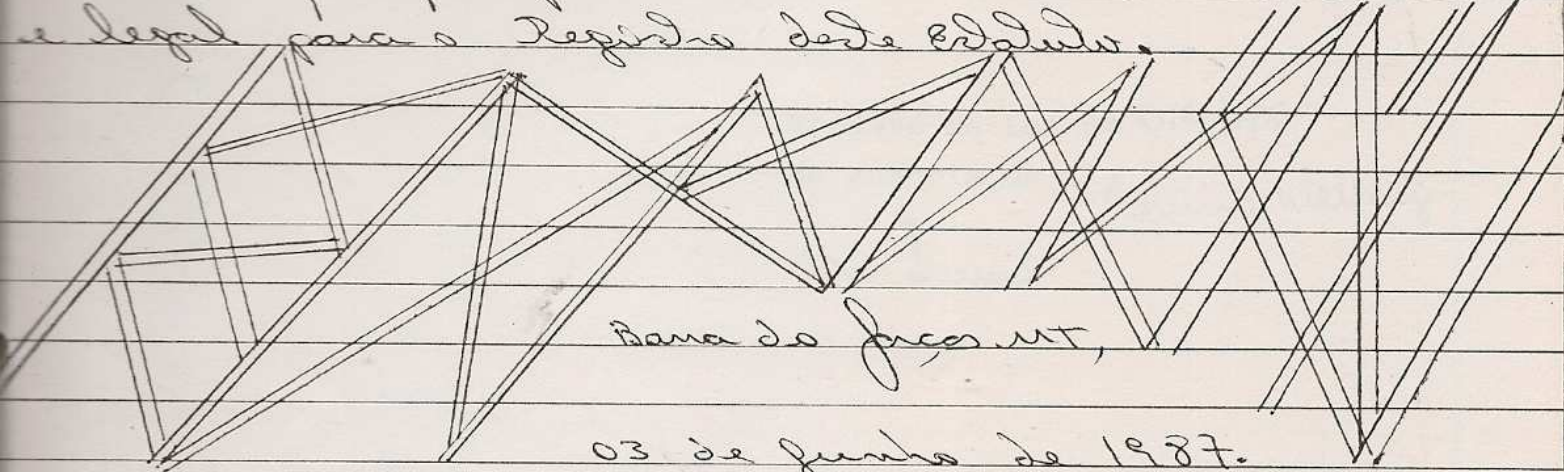 e legal para o Registro deste Estatuto.
Barra do Garças MT,
03 de Junho de 1987.